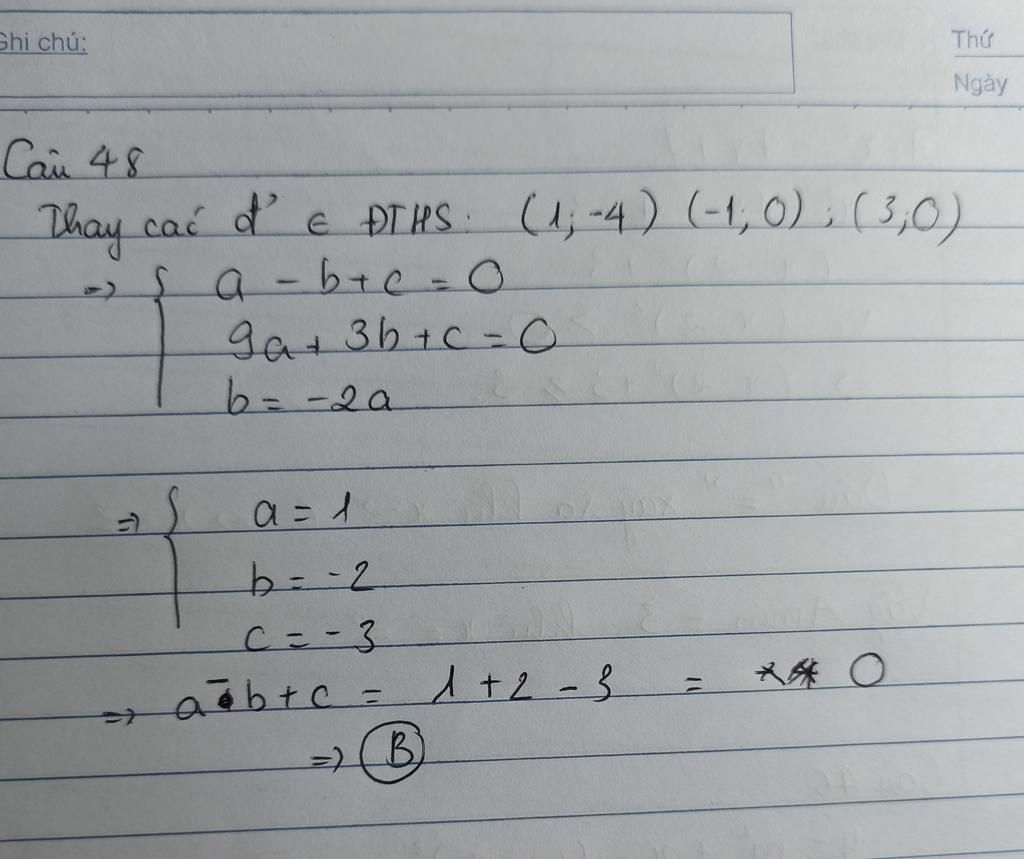 Ghi chú:
Thứ
Ngày
Câu 48
Thay các đ' ∈ ĐTHS: (1;-4) (-1; 0) ; (3;0)
=> { a - b + c = 0
9a + 3b + c = 0
b = -2a
=> { a = 1
b = -2
c = -3
=> a - b + c = 1 + 2 - 3 = 0
=> B